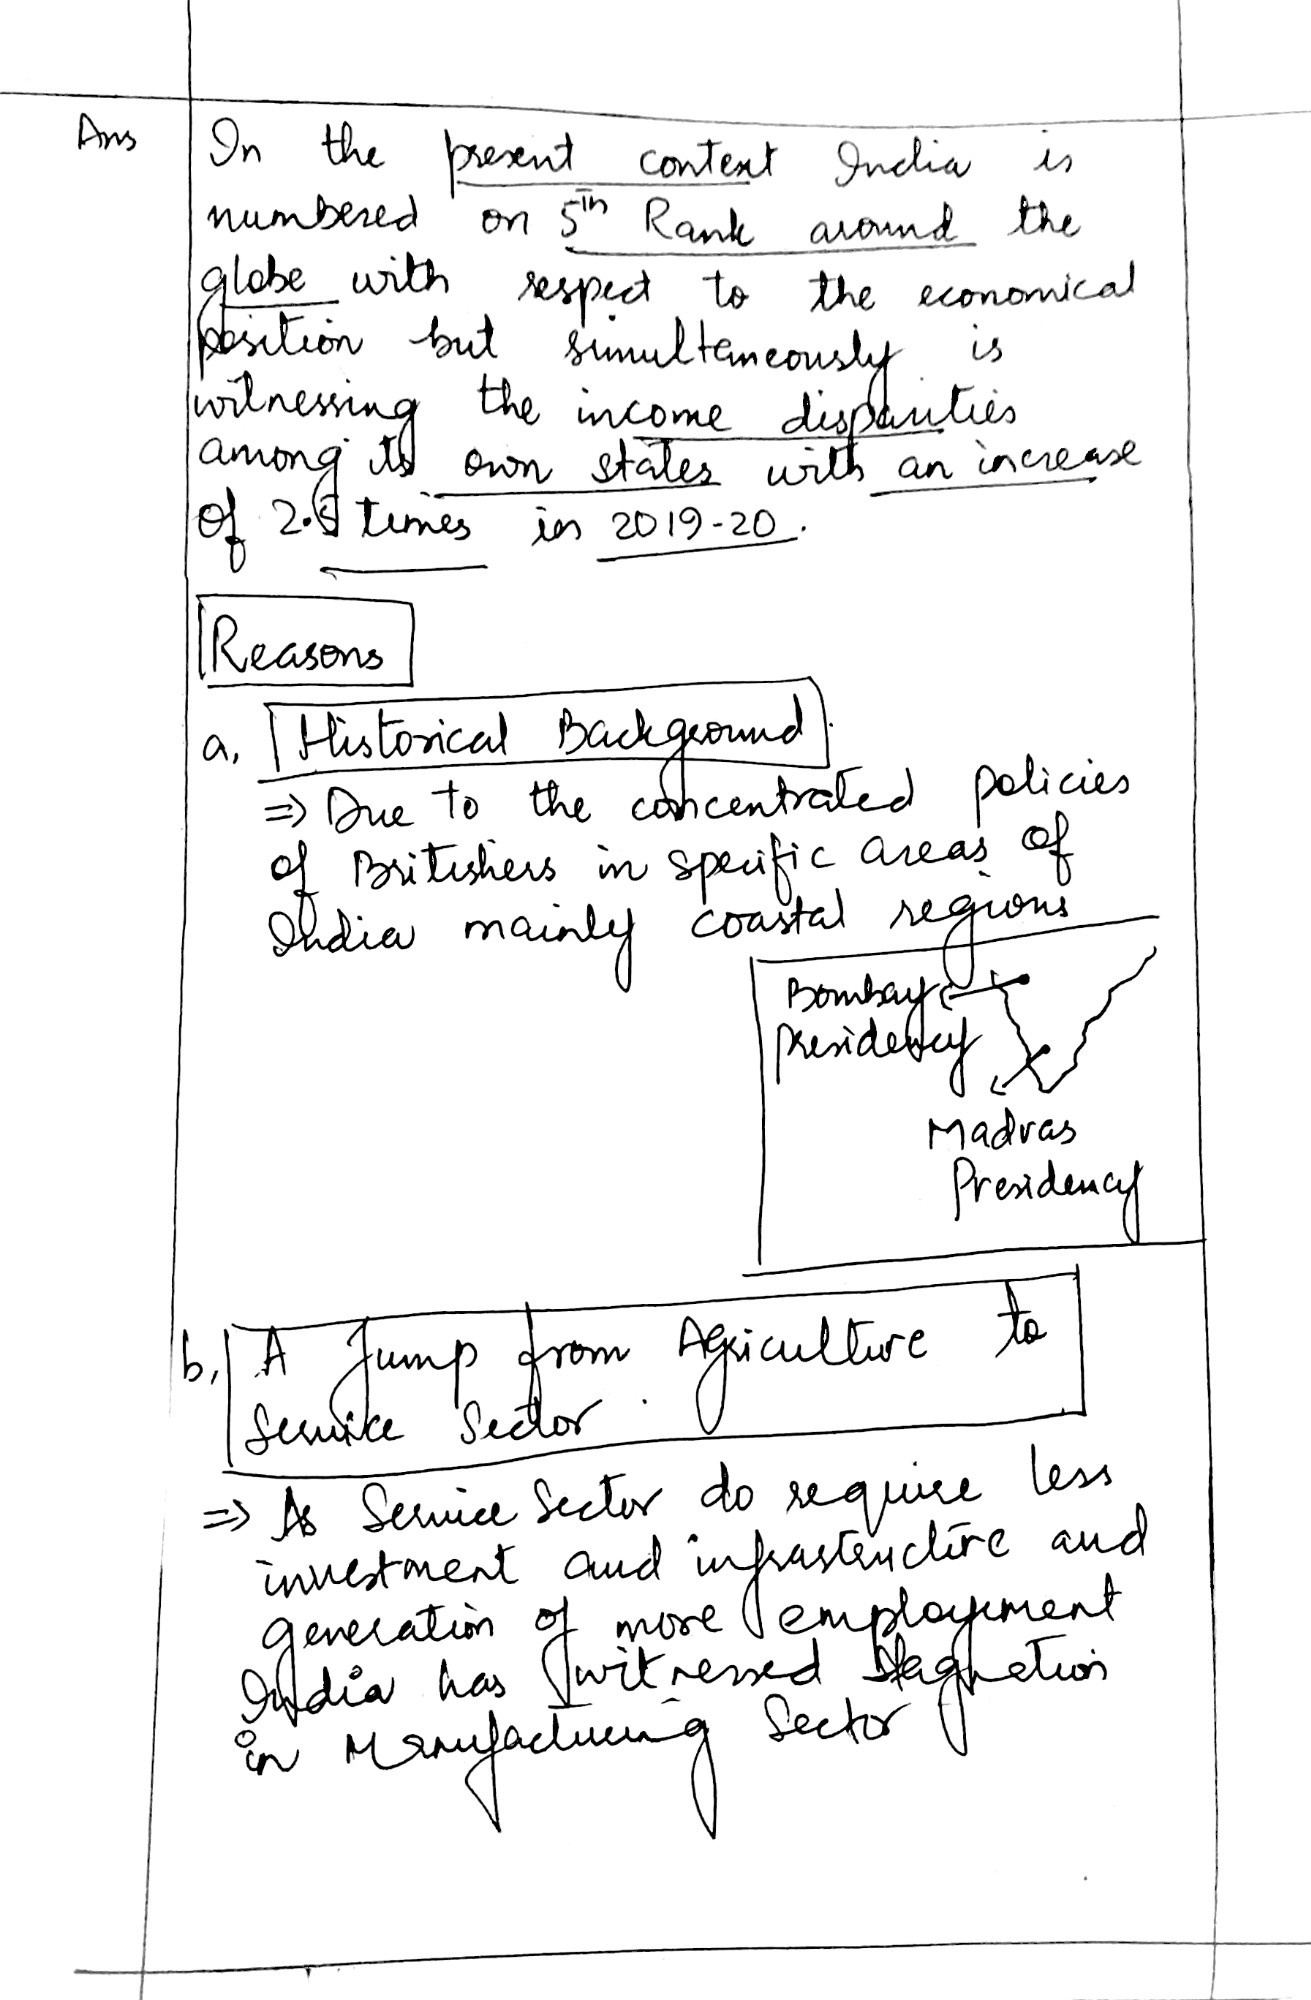 Ans
In the present context India is
numbered on 5th Rank around the
globe with respect to the economical
position but simultaneously is
witnessing the income disparities
among its own states with an increase
of 2. times in 2019-20.
Reasons
a. Historical Background
=> Due to the concentrated policies
of Britishers in specific areas of
India mainly coastal regions
Bombay
Presidency
Madras
Presidency
b. A Jump from Agriculture to
Service Sector.
=> As Service Sector do require less
investment and infrastructure and
generation of more employement
India has witnessed stagnation
in Manufacturing Sector